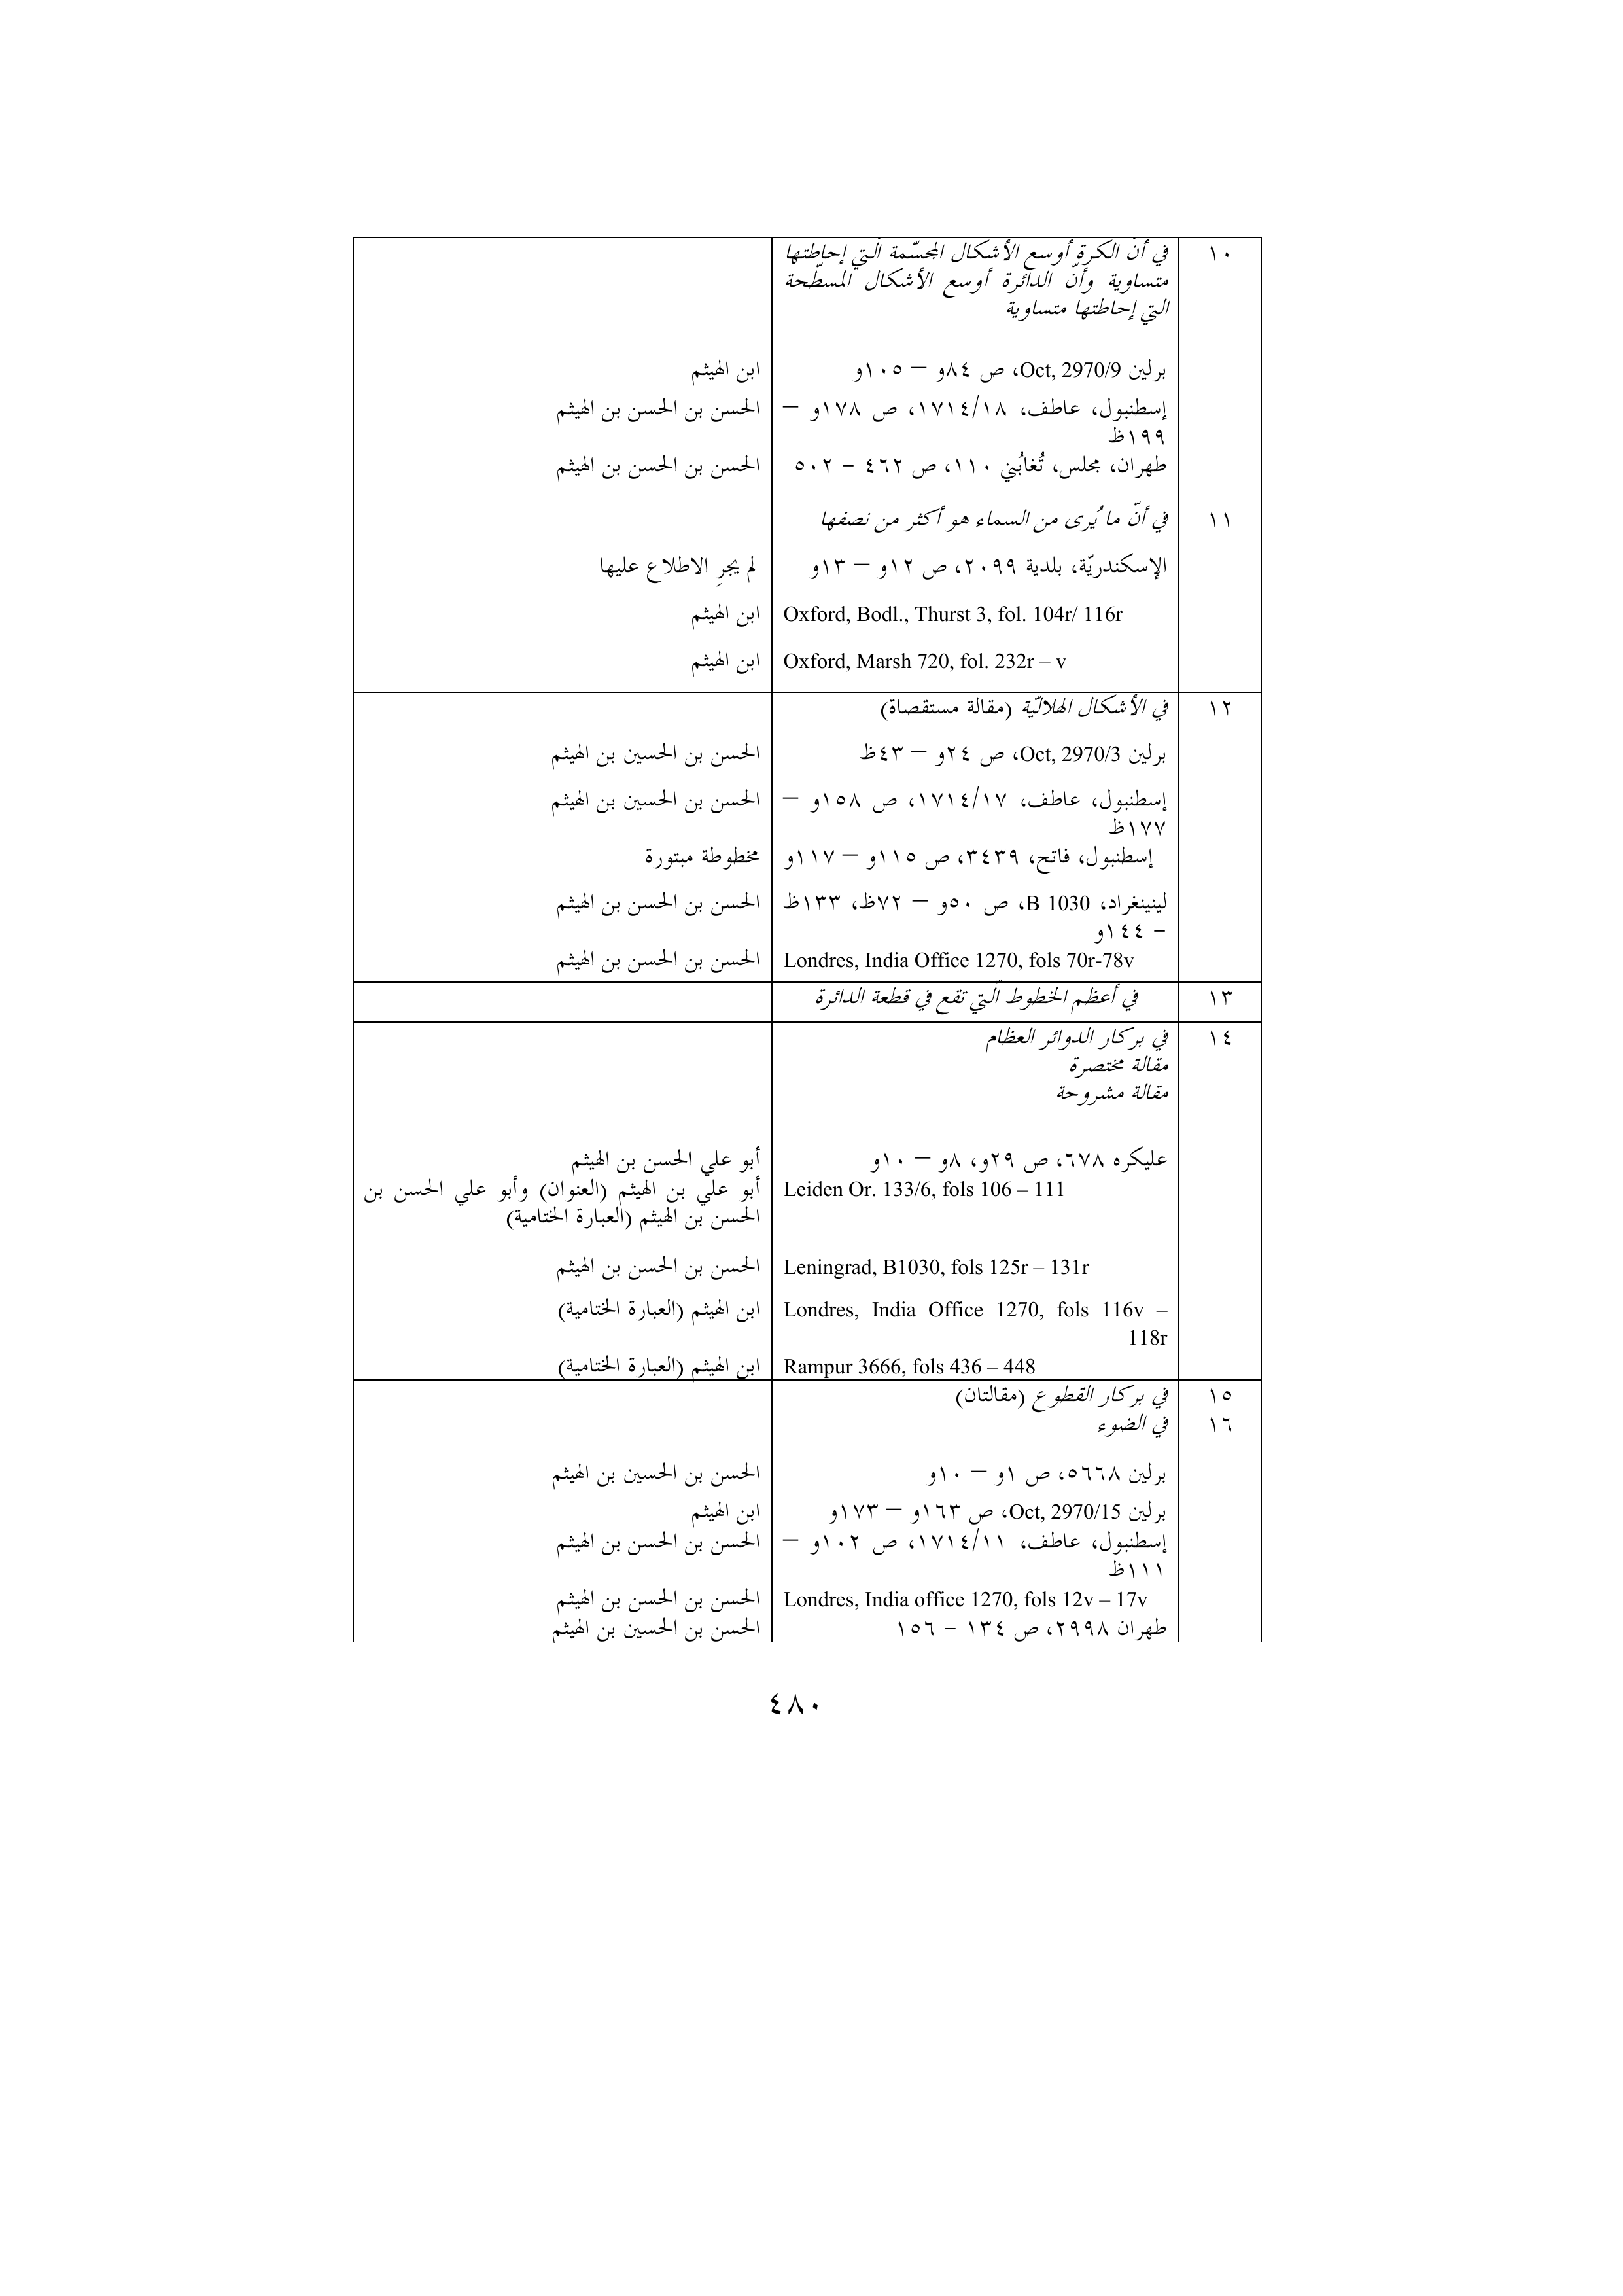 ١٠
في أنّ الكرة أوسع الأشكال المجسّمة التي إحاطتها
متساوية وأنّ الدائرة أوسع الأشكال المسطّحة
التي إحاطتها متساوية
برلين Oct, 2970/9، ص ٨٤و – ١٠٥و
ابن الهيثم
إسطنبول، عاطف، ١٧١٤/١٨، ص ١٧٨و –
١٩٩ظ
الحسن بن الحسن بن الهيثم
طهران، مجلس، تُغابُني ١١٠، ص ٤٦٢ – ٥٠٢
الحسن بن الحسن بن الهيثم
١١
في أنّ ما يُرى من السماء هو أكثر من نصفها
الإسكندريّة، بلدية ٢٠٩٩، ص ١٢و – ١٣و
لم يجرِ الاطلاع عليها
Oxford, Bodl., Thurst 3, fol. 104r/ 116r
ابن الهيثم
Oxford, Marsh 720, fol. 232r – v
ابن الهيثم
١٢
في الأشكال الهلاليّة (مقالة مستقصاة)
برلين Oct, 2970/3، ص ٢٤و – ٤٣ظ
الحسن بن الحسين بن الهيثم
إسطنبول، عاطف، ١٧١٤/١٧، ص ١٥٨و –
١٧٧ظ
الحسن بن الحسين بن الهيثم
إسطنبول، فاتح، ٣٤٣٩، ص ١١٥و – ١١٧و
مخطوطة مبتورة
لينينغراد، B 1030، ص ٥٠و – ٧٢ظ، ١٣٣ظ
– ١٤٤و
الحسن بن الحسن بن الهيثم
Londres, India Office 1270, fols 70r-78v
الحسن بن الحسن بن الهيثم
١٣
في أعظم الخطوط الّتي تقع في قطعة الدائرة
١٤
في بركار الدوائر العظام
مقالة مختصرة
مقالة مشروحة
عليكره ٦٧٨، ص ٢٩و، ٨و – ١٠و
أبو علي الحسن بن الهيثم
Leiden Or. 133/6, fols 106 – 111
أبو علي بن الهيثم (العنوان) وأبو علي الحسن بن
الحسن بن الهيثم (العبارة الختامية)
Leningrad, B1030, fols 125r – 131r
الحسن بن الحسن بن الهيثم
Londres, India Office 1270, fols 116v –
118r
ابن الهيثم (العبارة الختامية)
Rampur 3666, fols 436 – 448
ابن الهيثم (العبارة الختامية)
١٥
في بركار القطوع (مقالتان)
١٦
في الضوء
برلين ٥٦٦٨، ص ١و – ١٠و
الحسن بن الحسين بن الهيثم
برلين Oct, 2970/15، ص ١٦٣و – ١٧٣و
ابن الهيثم
إسطنبول، عاطف، ١٧١٤/١١، ص ١٠٢و –
١١١ظ
الحسن بن الحسن بن الهيثم
Londres, India office 1270, fols 12v – 17v
الحسن بن الحسن بن الهيثم
طهران ٢٩٩٨، ص ١٣٤ – ١٥٦
الحسن بن الحسين بن الهيثم
٤٨٠